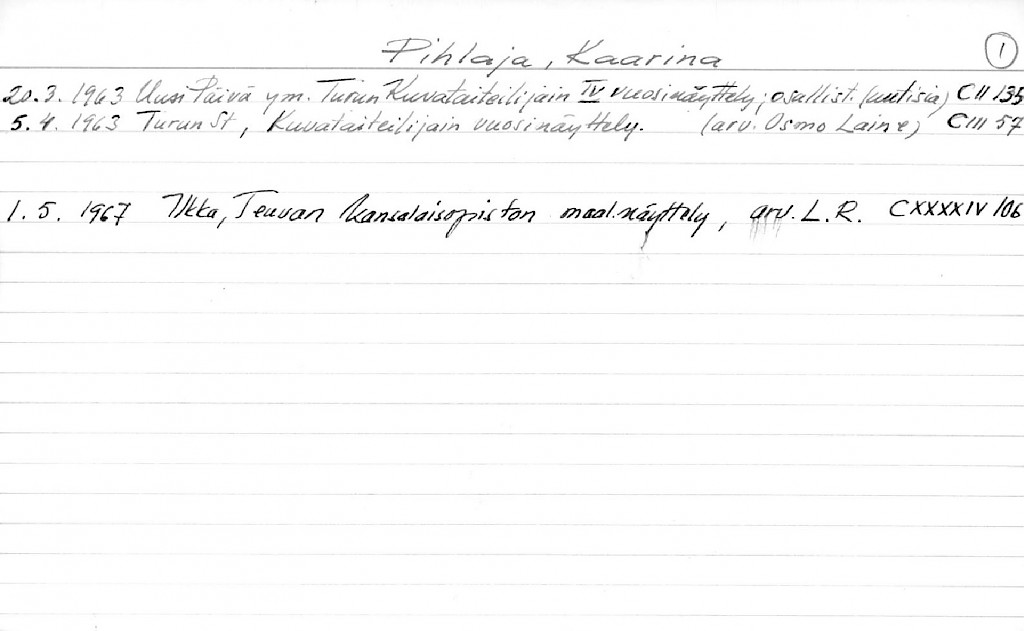 Pihlaja, Kaarina
1
20.3. 1963 Uusi Päivä ym. Turun Kuvataiteilijain IV vuosinäyttely; osallist. (uutisia) CII 135
5.4. 1963 Turun St, Kuvataiteilijain vuosinäyttely. (arv. Osmo Laine) CIII 57
1.5. 1967 Ilkka, Teuvan kansalaisopiston maal.näyttely, arv. L.R. CXXXXIV 106